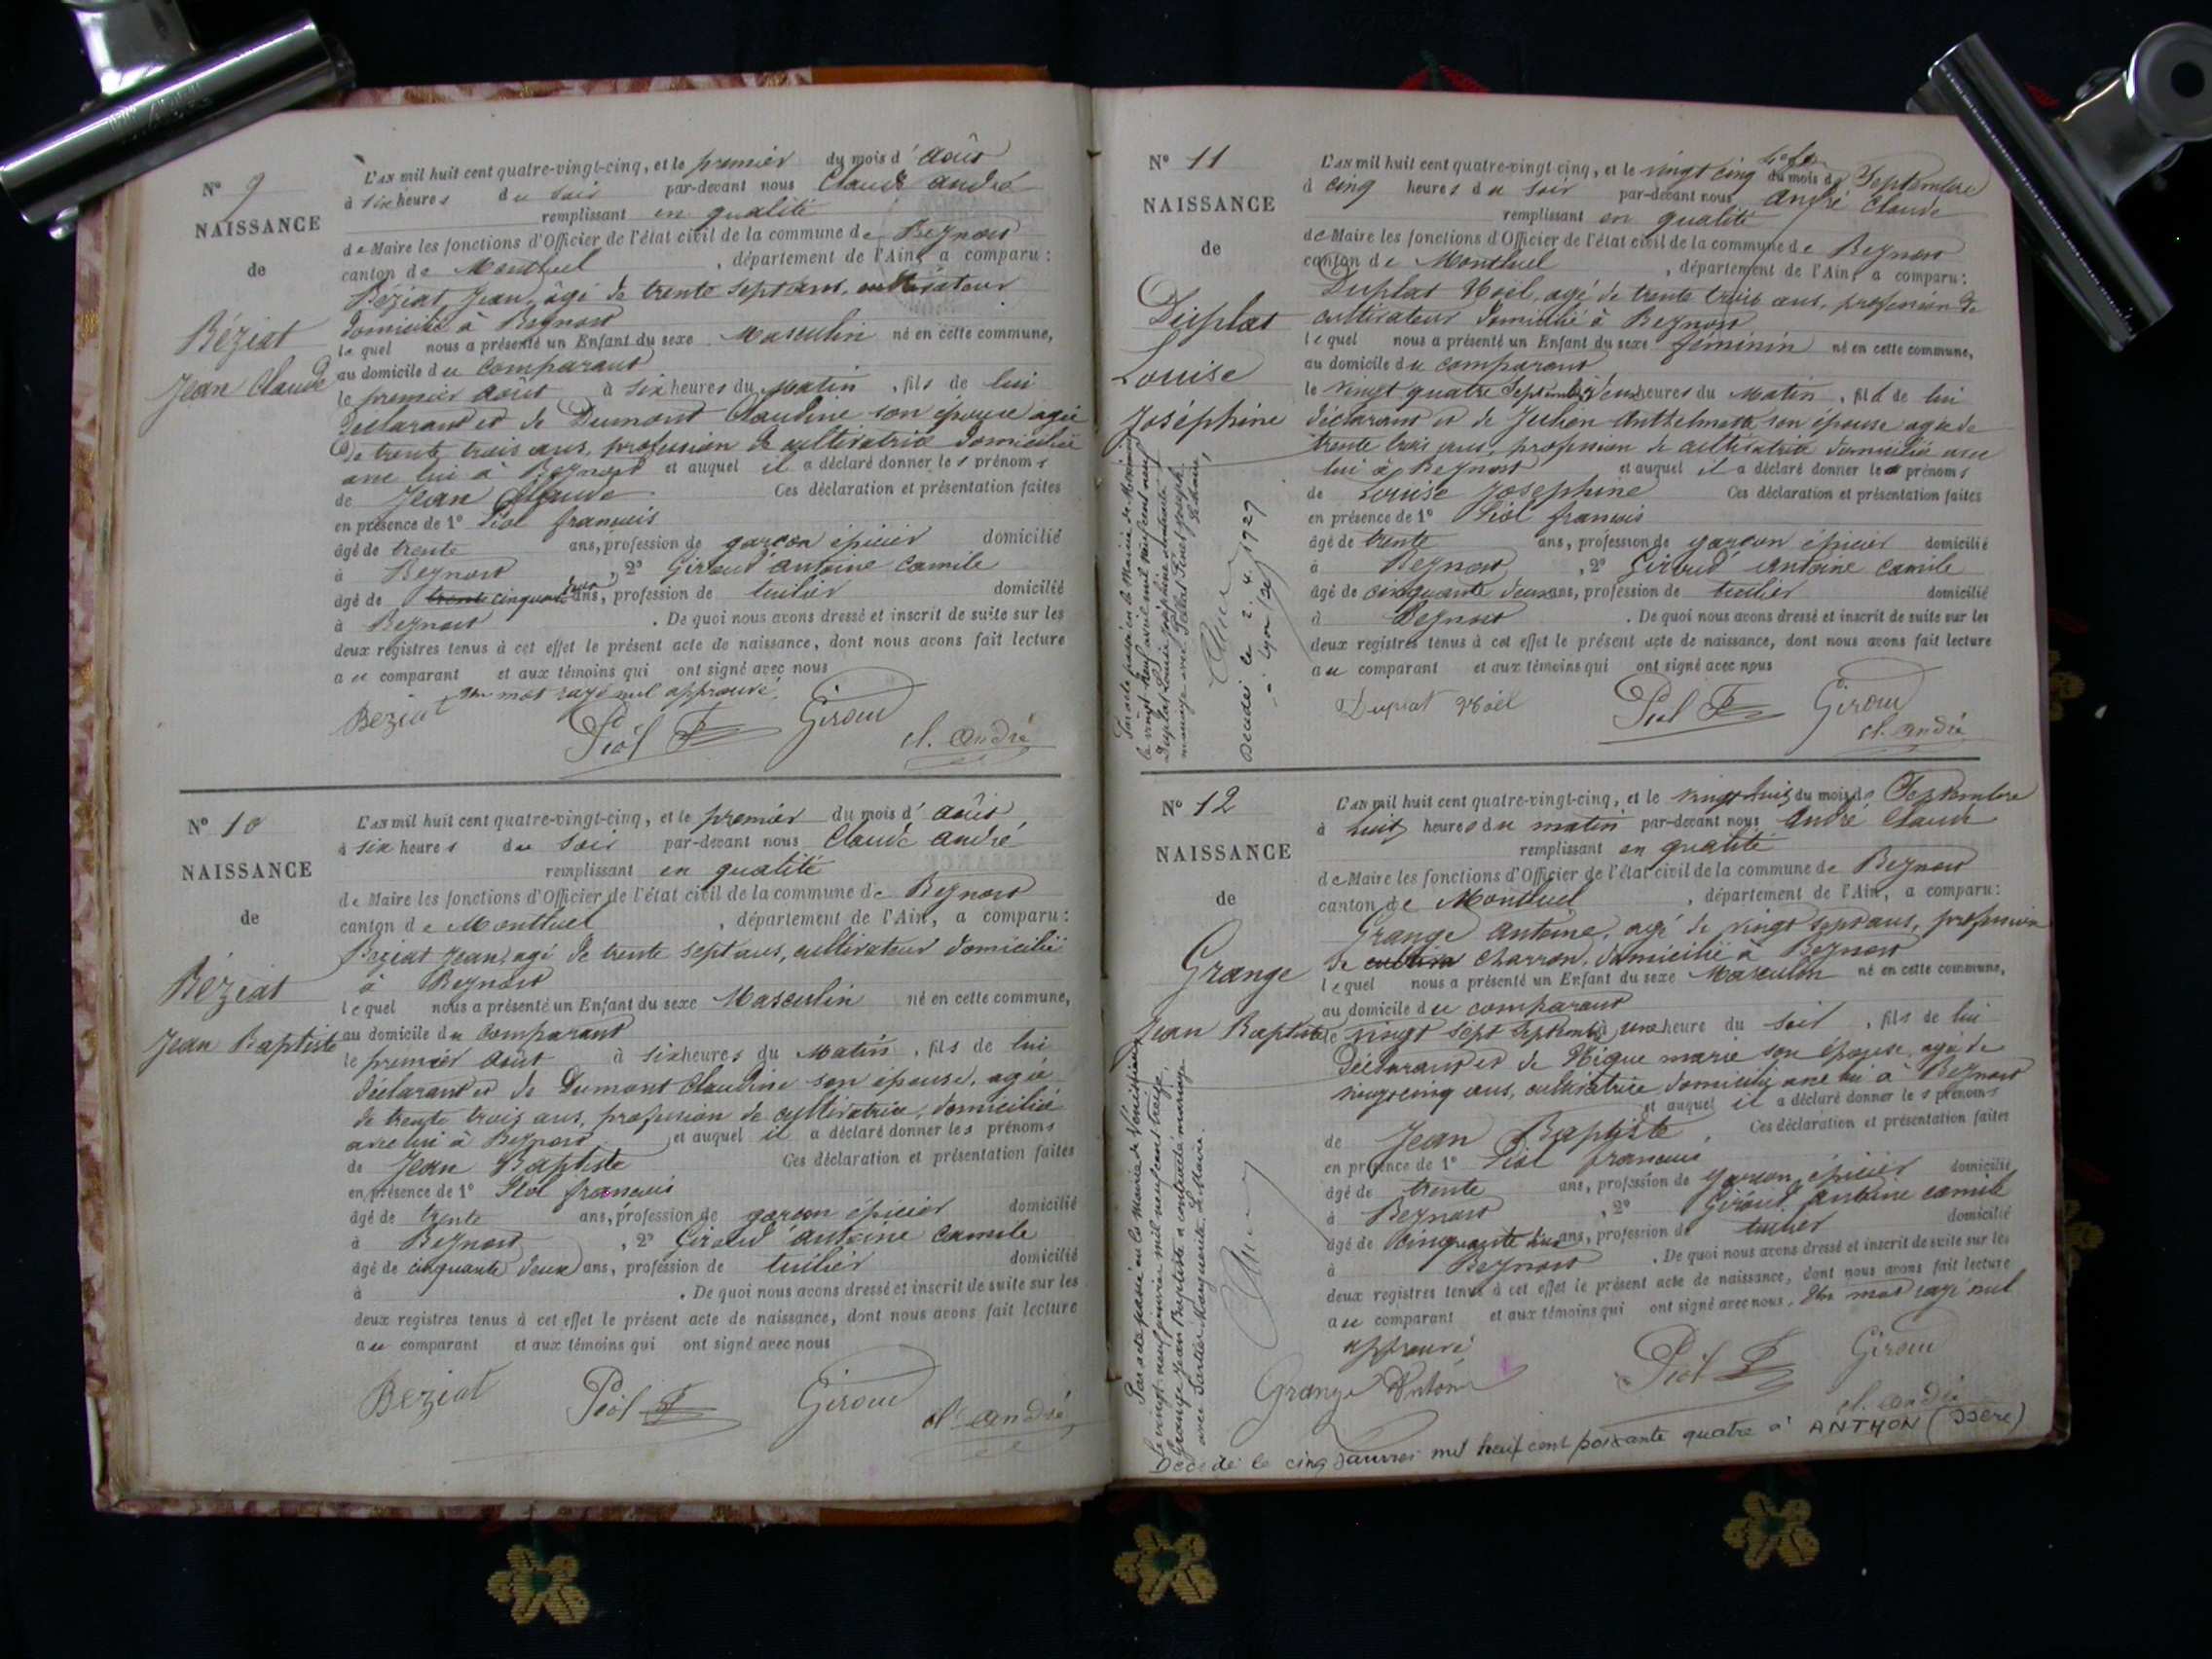 N° 9
NAISSANCE
de
Béziat
Jean Claude
L'AN mil huit cent quatre-vingt-cinq, et le premier du mois d'Août
à six heures du soir par-devant nous Claude André
remplissant en qualité
de Maire les fonctions d'Officier de l'état civil de la commune de Beynost
canton de Montluel, département de l'Ain, a comparu:
Béziat Jean, âgé de trente sept ans, cultivateur
domicilié à Beynost
lequel nous a présenté un Enfant du sexe Masculin né en cette commune,
au domicile du comparant
le premier Août à six heures du Matin, fils de lui
déclarant et de Dumont Claudine son épouse agée
de trente trois ans, profession de cultivatrice domiciliée
avec lui à Beynost et auquel il a déclaré donner les prénoms
de Jean Claude Ces déclaration et présentation faites
en présence de 1° Piol francois
âgé de trente ans, profession de garcon épicier domicilié
à Beynost, 2° Giroud Antoine Camile
âgé de trente cinquante deux ans, profession de tuilier domicilié
à Beynost. De quoi nous avons dressé et inscrit de suite sur les
deux registres tenus à cet effet le présent acte de naissance, dont nous avons fait lecture
au comparant et aux témoins qui ont signé avec nous
un mot rayé nul approuvé
Beziat Piol F Giroud
cl. André
N° 10
NAISSANCE
de
Béziat
Jean Baptiste
L'AN mil huit cent quatre-vingt-cinq, et le premier du mois d'Août
à six heures du soir par-devant nous Claude André
remplissant en qualité
de Maire les fonctions d'Officier de l'état civil de la commune de Beynost
canton de Montluel, département de l'Ain, a comparu:
Beziat Jean, agé de trente sept ans, cultivateur domicilié
à Beynost
lequel nous a présenté un Enfant du sexe Masculin né en cette commune,
au domicile du comparant
le premier Août à six heures du Matin, fils de lui
déclarant et de Dumont Claudine son épouse, agée
de trente trois ans, profession de cultivatrice, domiciliée
avec lui à Beynost et auquel il a déclaré donner les prénoms
de Jean Baptiste Ces déclaration et présentation faites
en présence de 1° Piol francois
âgé de trente ans, profession de garcon épicier domicilié
à Beynost, 2° Giroud Antoine Camile
âgé de cinquante deux ans, profession de tuilier domicilié
à . De quoi nous avons dressé et inscrit de suite sur les
deux registres tenus à cet effet le présent acte de naissance, dont nous avons fait lecture
au comparant et aux témoins qui ont signé avec nous
Beziat Piol F Giroud
cl. André
N° 11
NAISSANCE
de
Duplat
Louise
Joséphine
L'AN mil huit cent quatre-vingt cinq, et le vingt cinq du mois de Septembre
à cinq heures du soir par-devant nous André Claude
remplissant en qualité
de Maire les fonctions d'Officier de l'état civil de la commune de Beynost
canton de Montluel, département de l'Ain, a comparu:
Duplat Noël, agé de trente trois ans, profession de
cultivateur domicilié à Beynost
lequel nous a présenté un Enfant du sexe féminin né en cette commune,
au domicile du comparant
le vingt quatre Septembre à deux heures du Matin, fild de lui
déclarant et de Jullien Anthelmette son épouse agée de
trente trois ans, profession de cultivatrice domiciliée avec
lui à Beynost et auquel il a déclaré donner les prénoms
de Louise Joséphine Ces déclaration et présentation faites
en présence de 1° Piol francois
âgé de trente ans, profession de garcon épicier domicilié
à Beynost, 2° Giroud Antoine Camile
âgé de cinquante deux ans, profession de tuilier domicilié
à Beynost. De quoi nous avons dressé et inscrit de suite sur les
deux registres tenus à cet effet le présent acte de naissance, dont nous avons fait lecture
au comparant et aux témoins qui ont signé avec nous
Duplat Noël Piol F Giroud
cl. André
Par acte passé en la Mairie de
le vingt neuf avril mil neuf cent neuf
Duplat Louise Joséphine a contracté
mariage avec Joseph
Le Maire,
Décédée le 2. 4. 1929
à Lyon
N° 12
NAISSANCE
de
Grange
Jean Baptiste
L'AN mil huit cent quatre-vingt-cinq, et le vingt huit du mois de Septembre
à huit heures du matin par-devant nous André Claude
remplissant en qualité
de Maire les fonctions d'Officier de l'état civil de la commune de Beynost
canton de Montluel, département de l'Ain, a comparu:
Grange Antoine, agé de vingt sept ans, profession
de cultiva charron, domicilié à Beynost
lequel nous a présenté un Enfant du sexe Masculin né en cette commune,
au domicile du comparant
le vingt sept Septembre à une heure du soir, fils de lui
Déclarant et de Nique marie son épouse, agée de
vingt cinq ans, cultivatrice domiciliée avec lui à Beynost
et auquel il a déclaré donner les prénoms
de Jean Baptiste. Ces déclaration et présentation faites
en présence de 1° Piol francois
âgé de trente ans, profession de garcon épicier domicilié
à Beynost, 2° Giroud Antoine camile
âgé de cinquante deux ans, profession de tuilier domicilié
à Beynost. De quoi nous avons dressé et inscrit de suite sur les
deux registres tenus à cet effet le présent acte de naissance, dont nous avons fait lecture
au comparant et aux témoins qui ont signé avec nous. Un mot rayé nul
approuvé
Grange Antoine Piol F Giroud
cl. André
Par acte passé en la Mairie de Vénissieux
le vingt neuf janvier mil neuf cent treize,
Grange Jean Baptiste a contracté mariage
avec Marguerite. Le Maire.
Décédé le cinq Janvier mil neuf cent soixante quatre à ANTHON (Isère)